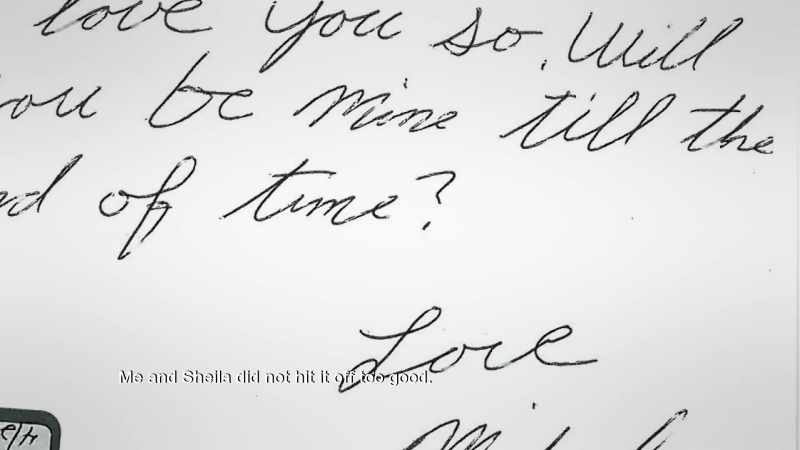 love you so. Will
you be mine till the
of time?
Love
Me and Sheila did not hit it off too good.